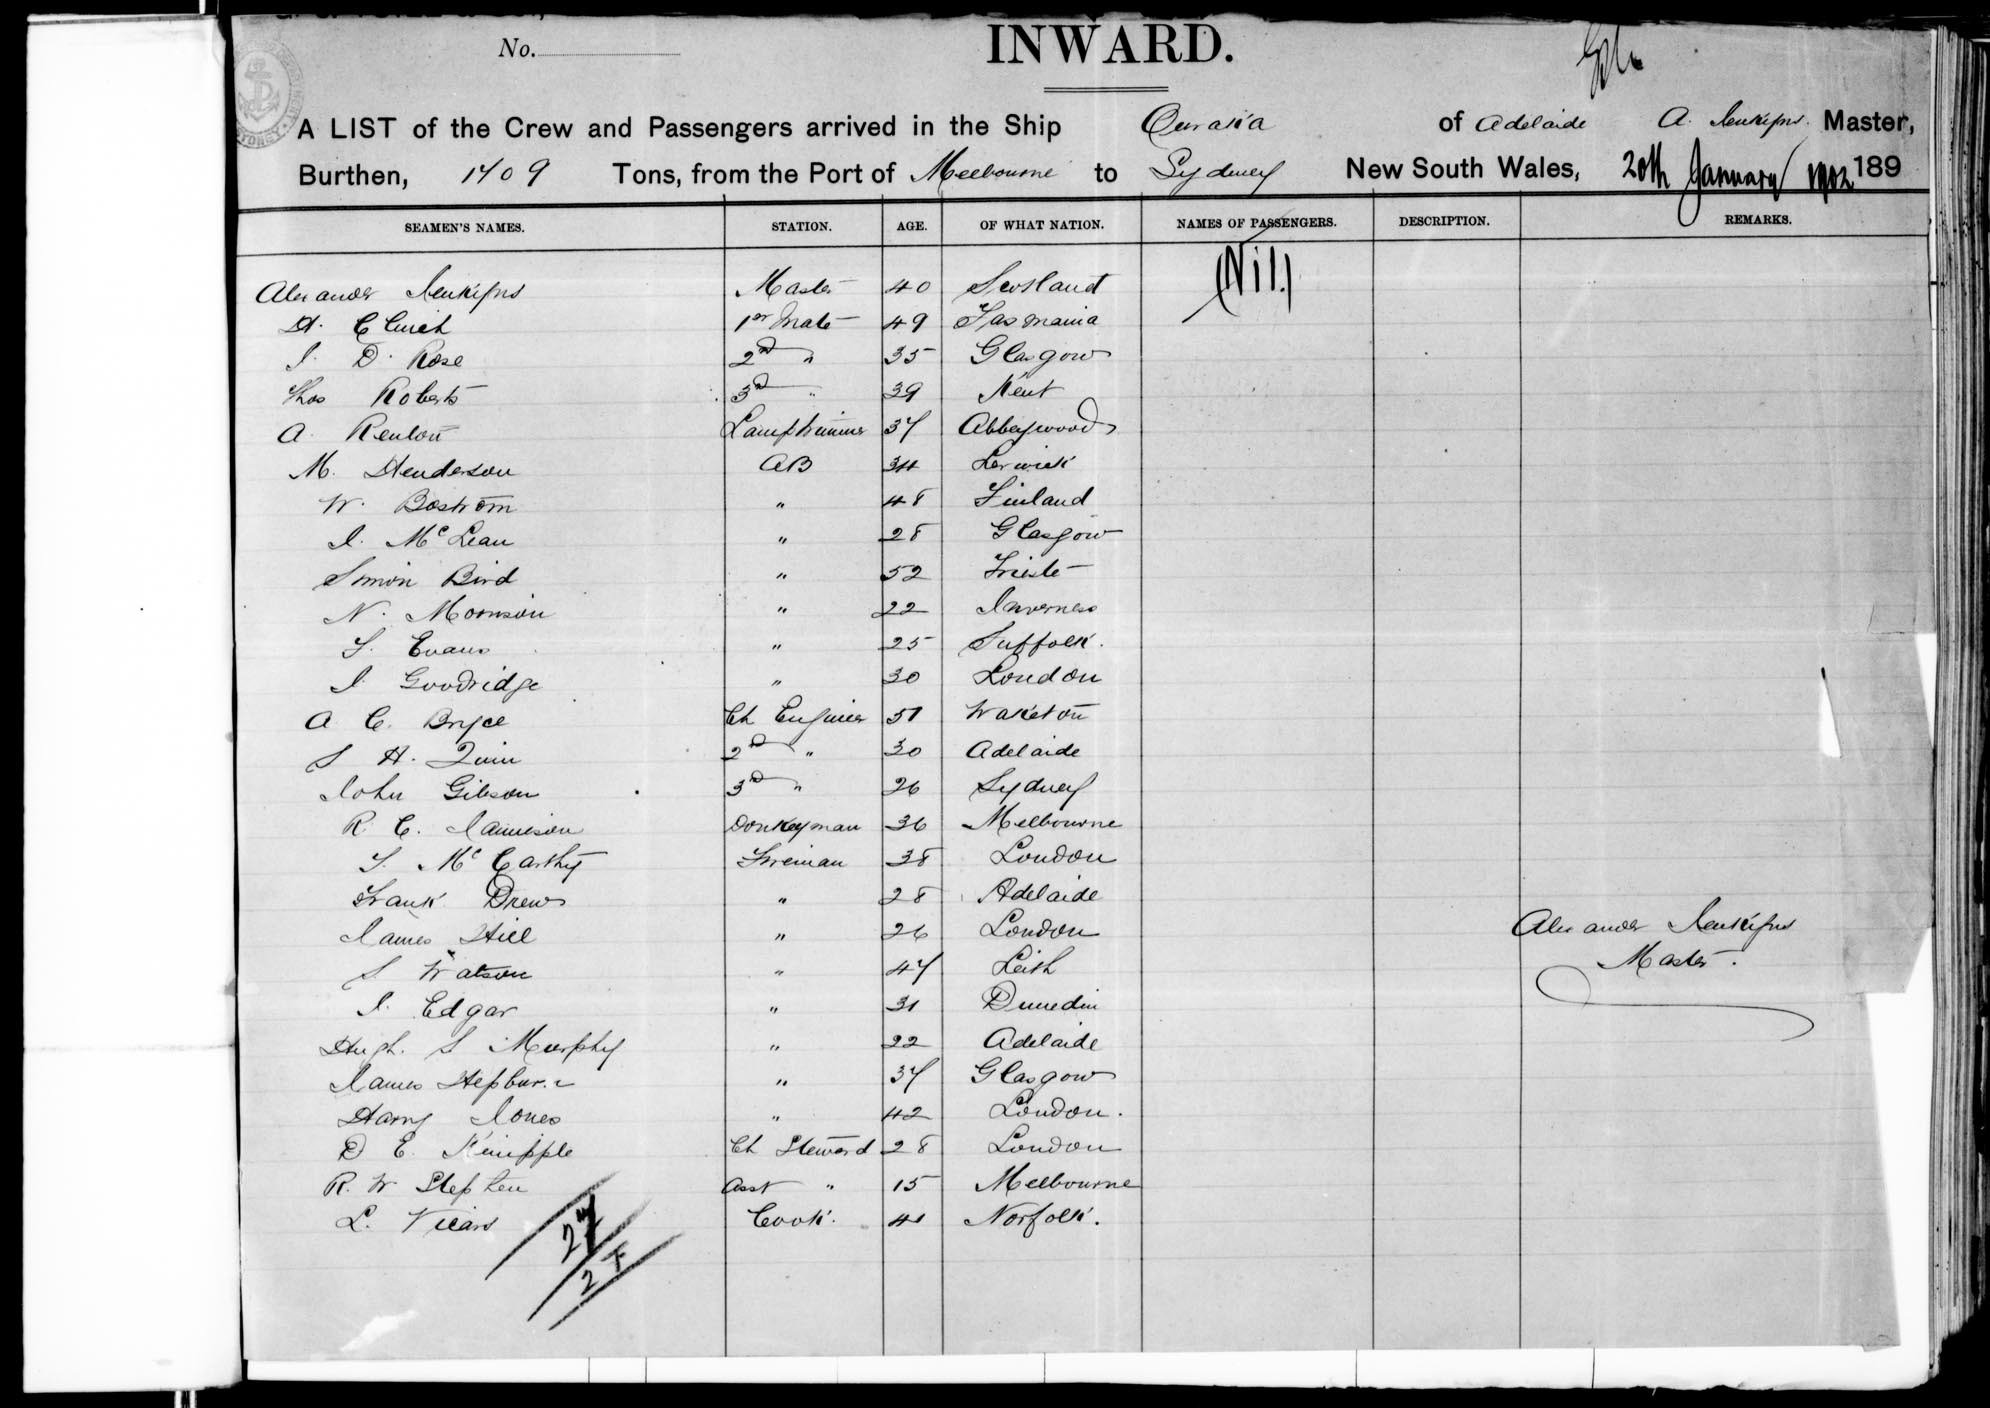 No.
INWARD.
A LIST of the Crew and Passengers arrived in the Ship Ouraka of Adelaide A. Jenkins Master,
Burthen, 1409 Tons, from the Port of Melbourne to Sydney New South Wales, 20th January 1902 189
SEAMEN'S NAMES. STATION. AGE. OF WHAT NATION. NAMES OF PASSENGERS. DESCRIPTION. REMARKS.
(Nil.)
Alexander Jenkins Master 40 Scotland
H. Clinch 1st Mate 49 Tasmania
J. D. Rose 2nd " 35 Glasgow
Thos Roberts 3rd " 39 Kent
A. Renton Lamptrimmer 37 Abbeywood
M. Henderson AB 34 Lerwick
W. Bostrom " 48 Finland
J. McLean " 28 Glasgow
Simon Bird " 52 Trieste
N. Morrison " 22 Inverness
T. Evans " 25 Suffolk.
J. Goodridge " 30 London
A. C. Bryce Ch Engineer 51
S H. Quin 2nd " 30 Adelaide
John Gibson 3rd " 26 Sydney
R. C. Jamieson Donkeyman 36 Melbourne
T. McCarthy Fireman 38 London
Frank Drew " 28 Adelaide
James Hill " 26 London
S Watson " 47 Leith
J. Edgar " 31 Dunedin
Hugh. S Murphy " 22 Adelaide
James Hepburn " 37 Glasgow
Harry Jones " 42 London.
D E. Kempple Ch Steward 28 London
R. W Stephen Asst " 15 Melbourne
L. Vicars Cook. 41 Norfolk.
27
Alexander Jenkins
Master.